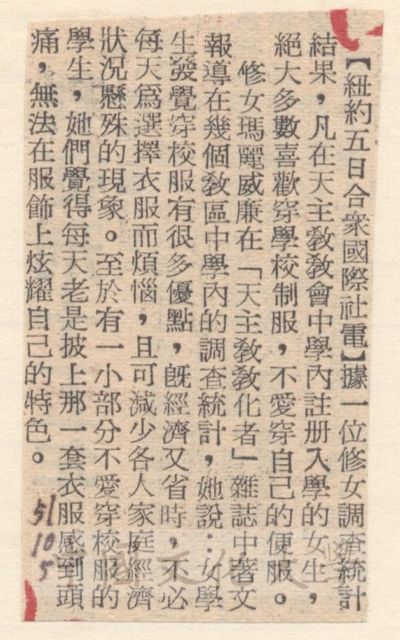 【紐約五日合衆國際社電】據一位修女調查統計
結果，凡在天主教教會中學內註册入學的女生，
絕大多數喜歡穿學校制服，不愛穿自己的便服。
修女瑪麗威廉在「天主教教化者」雜誌中著文
報導在幾個教區中學內的調查統計，她說：女學
生發覺穿校服有很多優點，旣經濟又省時，不必
每天爲選擇衣服而煩惱，且可減少各人家庭經濟
狀況懸殊的現象。至於有一小部分不愛穿校服的
學生，她們覺得每天老是披上那一套衣服感到頭
痛，無法在服飾上炫耀自己的特色。
51
10
5